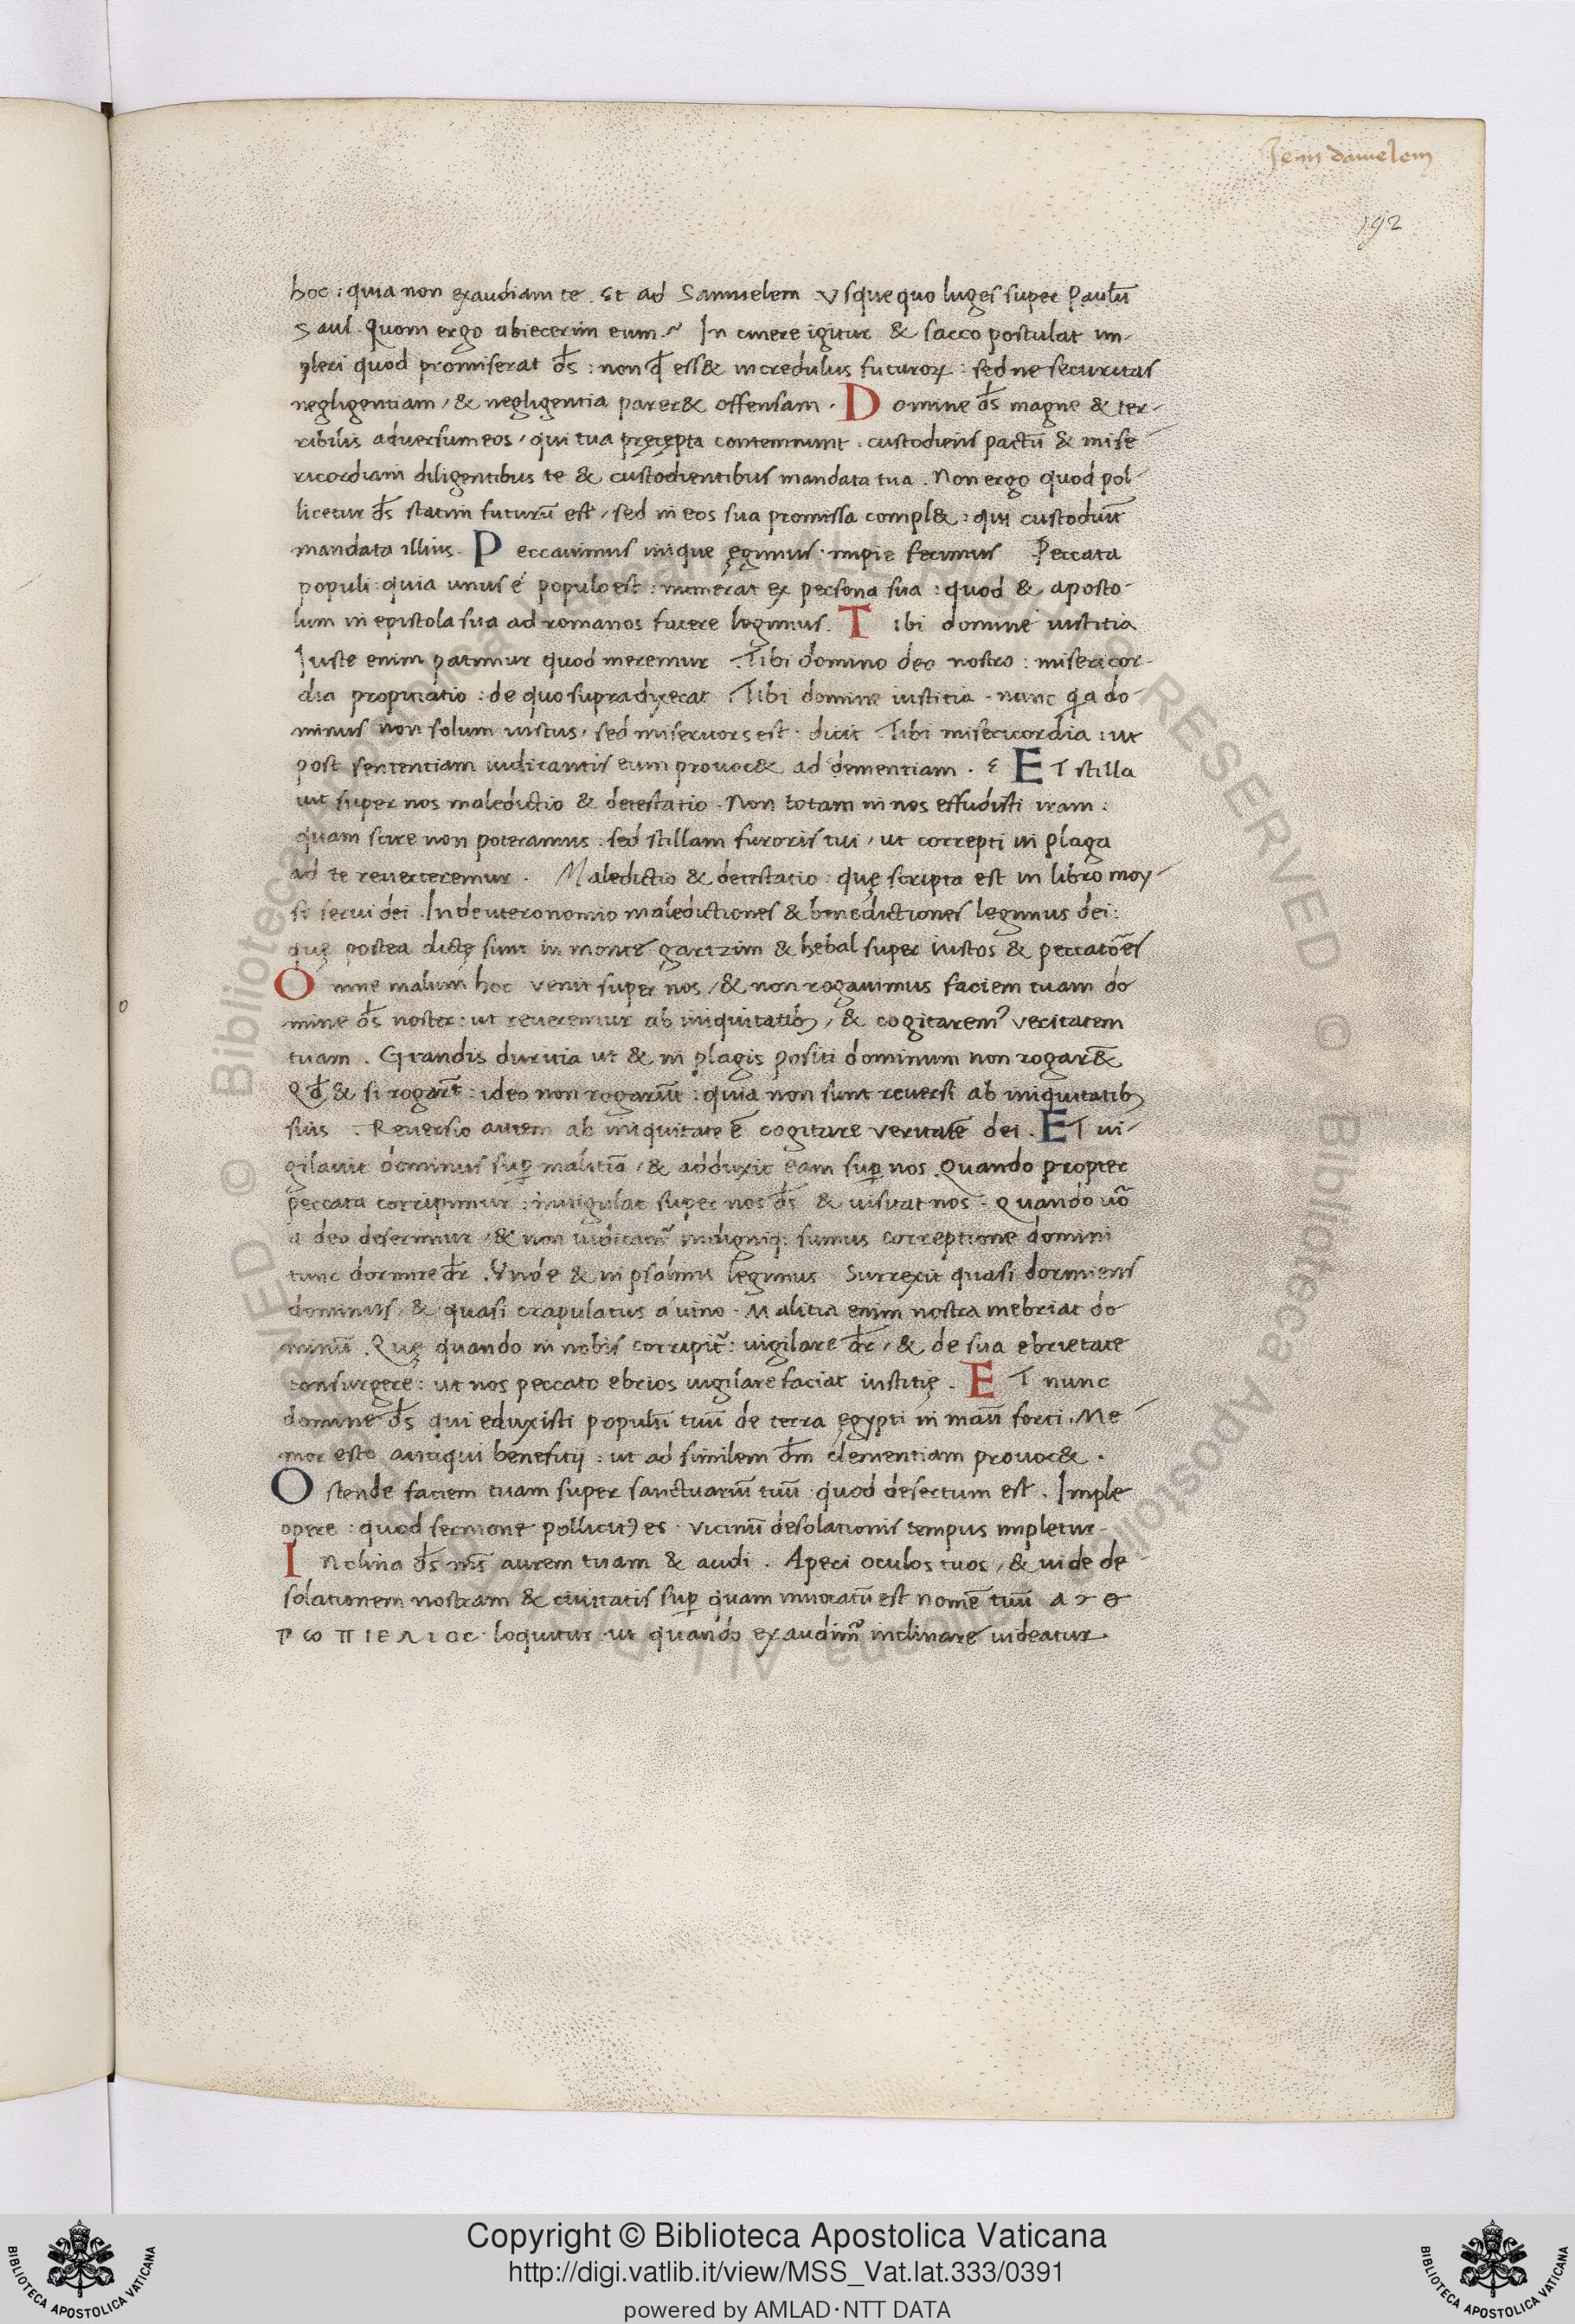 Iem danielem
192
hoc : quia non exaudiam te . Et ad Samuelem Vsquequo luges super Paulū
Saul . Quom ergo abiecerim eum . In cinere igitur & sacco postulat im-
pleri quod promiserat ds̄ : non qđ ess& incredulus futuroꝝ : sed ne securitas
negligentiam , & negligentia parer& offensam . Domine ds̄ magne & ter-
ribilis adversum eos , qui tua pręcepta contemnunt . custodiens pactū & mise-
ricordiam diligentibus te & custodientibus mandata tua . Non ergo quod pol-
licetur ds̄ statim futurū est , sed in eos sua promissa compl& : qui custodiūt
mandata illius . Peccavimus inique ęgimus . impie fecimus Peccata
populi quia unus é populo est : numerat ex persona sua : quod & aposto-
lum in epistola sua ad romanos facere legimus . Tibi domine iustitia
Iuste enim patimur quod meremur Tibi domino deo nostro : misericor-
dia propitiatio : de quo supra dixerat Tibi domine iustitia . nunc qa do-
minus non solum iustus , sed misericors est . dicit Tibi misericordia : ut
post sententiam iudicantis eum provoc& ad clementiam . & ET stilla
uit super nos maledictio & detestatio . Non totam in nos effudisti iram :
quam scire non poteramus : sed stillam furoris tui , ut correpti in plaga
ad te reverteremur . Maledictio & detestatio : quę scripta est in libro moy-
si servi dei . In deuteronomio maledictiones & benedictiones legimus dei :
quę postea dictę sunt in monte garizim & hebal super iustos & peccatōes
Omne malum hoc venit super nos , & non rogavimus faciem tuam do
mine ds̄ noster : ut reveremur ab iniquitatibꝫ , & cogitaremꝰ veritatem
tuam . Grandis duritia ut & in plagis positi dominum non rogar&̄
Qđ & si rogarēt : ideo non rogariūt : quia non sunt reversi ab iniquitatibꝫ
suis . Reversio autem ab iniquitate ē cogitare veritatē dei . ET ui-
gilauit dominus suꝑ malitiā , & adduxit eam suꝑ nos . Quando propter
peccata corripimur : inuigulat super nos ds̄ & uisitat nos . Quando uō
a deo deserimur , & non iudicamꝰ indigniqꝫ sumus correptione domini
tunc dormire dr̄ . Vnde & in psalmis legimus Surrexit quasi dormiens
dominus , & quasi crapulatus a uino . Malitia enim nostra inebriat do
minū . Quę quando in nobis corripit᷑ : uigilare dr̄ , & de sua ebrietate
consurgere : ut nos peccato ebrios uigilare faciat iustitię . ET nunc
domine ds̄ qui eduxisti populū tuū de terra ęgypti in manū forti . Me-
mor esto antiqui beneficij : ut ad similem dm̄ clementiam provoc& .
Ostende faciem tuam super sanctuariū tuū : quod desertum est . Imple
opere : quod sermone pollicitꝰ es . vicinū desolationis tempus impletur .
Inclina ds̄ ms̄ aurem tuam & audi . Aperi oculos tuos , & uide de-
solationem nostram & civitatis suꝑ quam inuocatū est nomē tuū α ν θ
ρ ω π ι ε λ ι ο c . loquitur . ut quando exaudimꝰ inclinare uideatur .
Copyright © Biblioteca Apostolica Vaticana
http://digi.vatlib.it/view/MSS_Vat.lat.333/0391
powered by AMLAD·NTT DATA